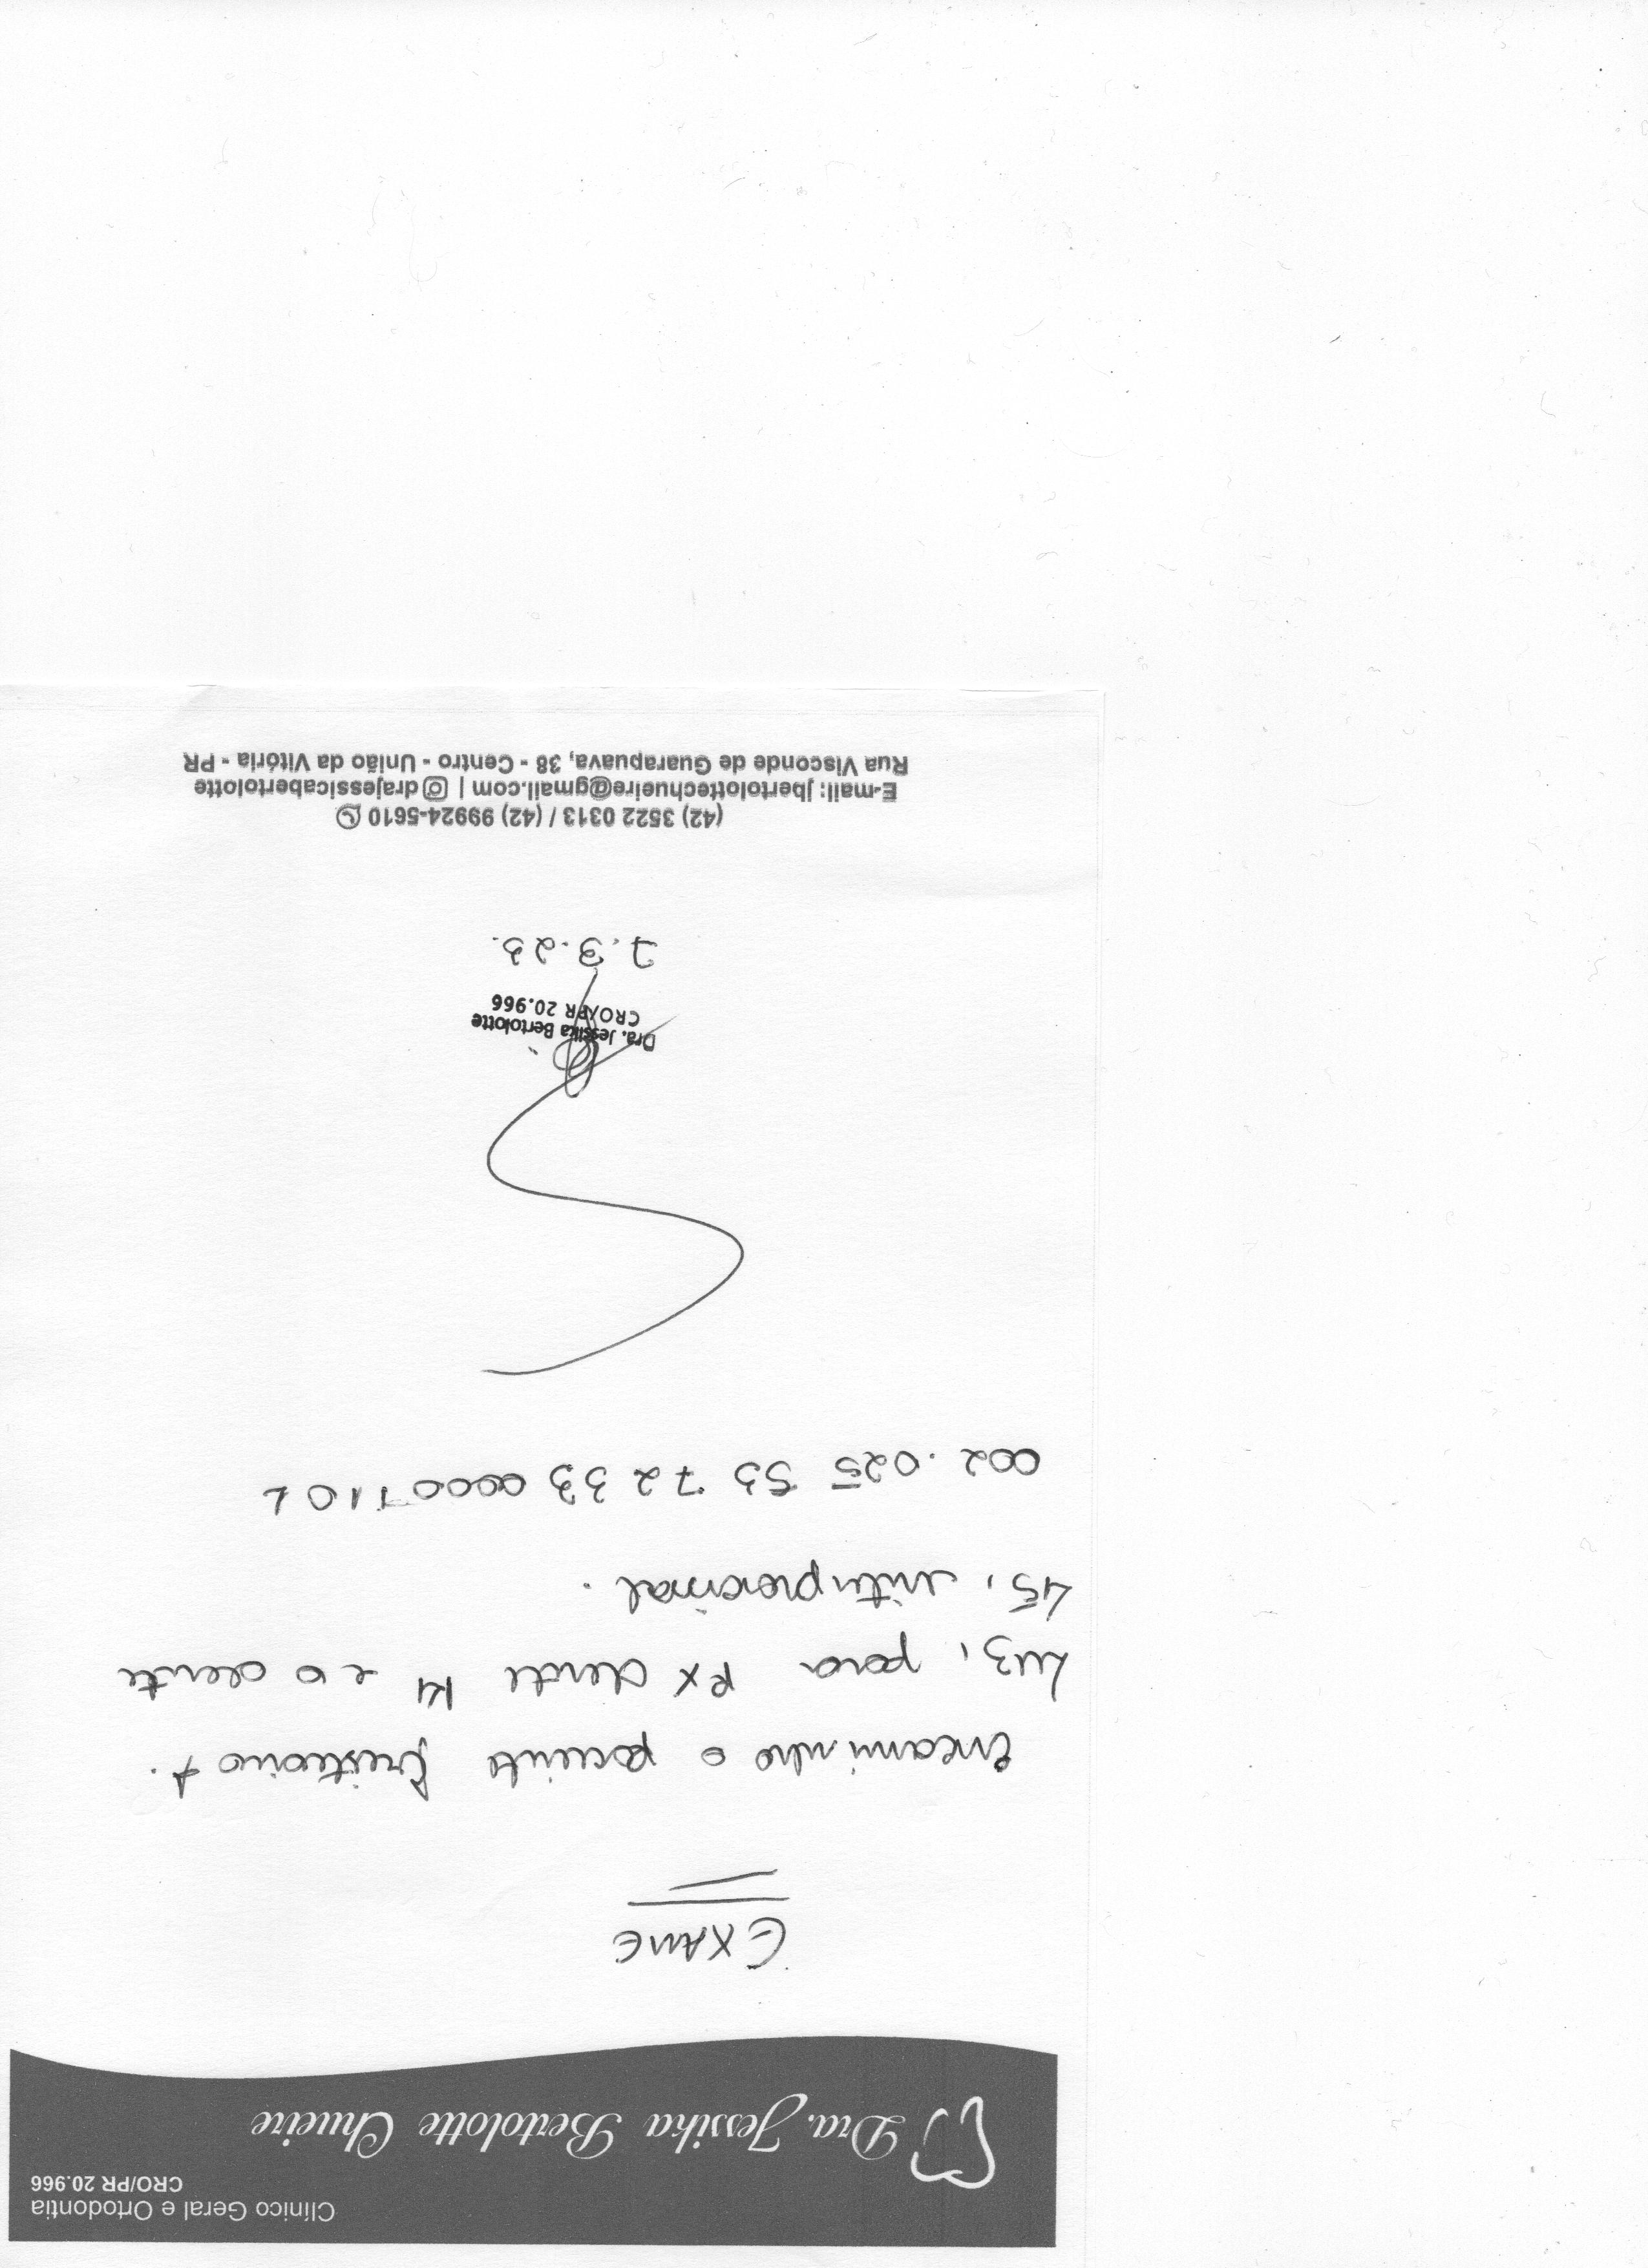 Clínico Geral e Ortodontia
CRO/PR 20.966
Dra. Jessika Bertolotte Chueire
EXAME
Encaminho o paciente Cristiano A.
Luz, para RX dente 14 e o dente
45, interproximal.
002.025 53 72 33 0000 110 1
Dra. Jessika Bertolotte
CRO/PR 20.966
7.3.23.
(42) 3522 0313 / (42) 99924-5610
E-mail: jbertolottechueire@gmail.com | drajessicabertolotte
Rua Visconde de Guarapuava, 38 - Centro - União da Vitória - PR